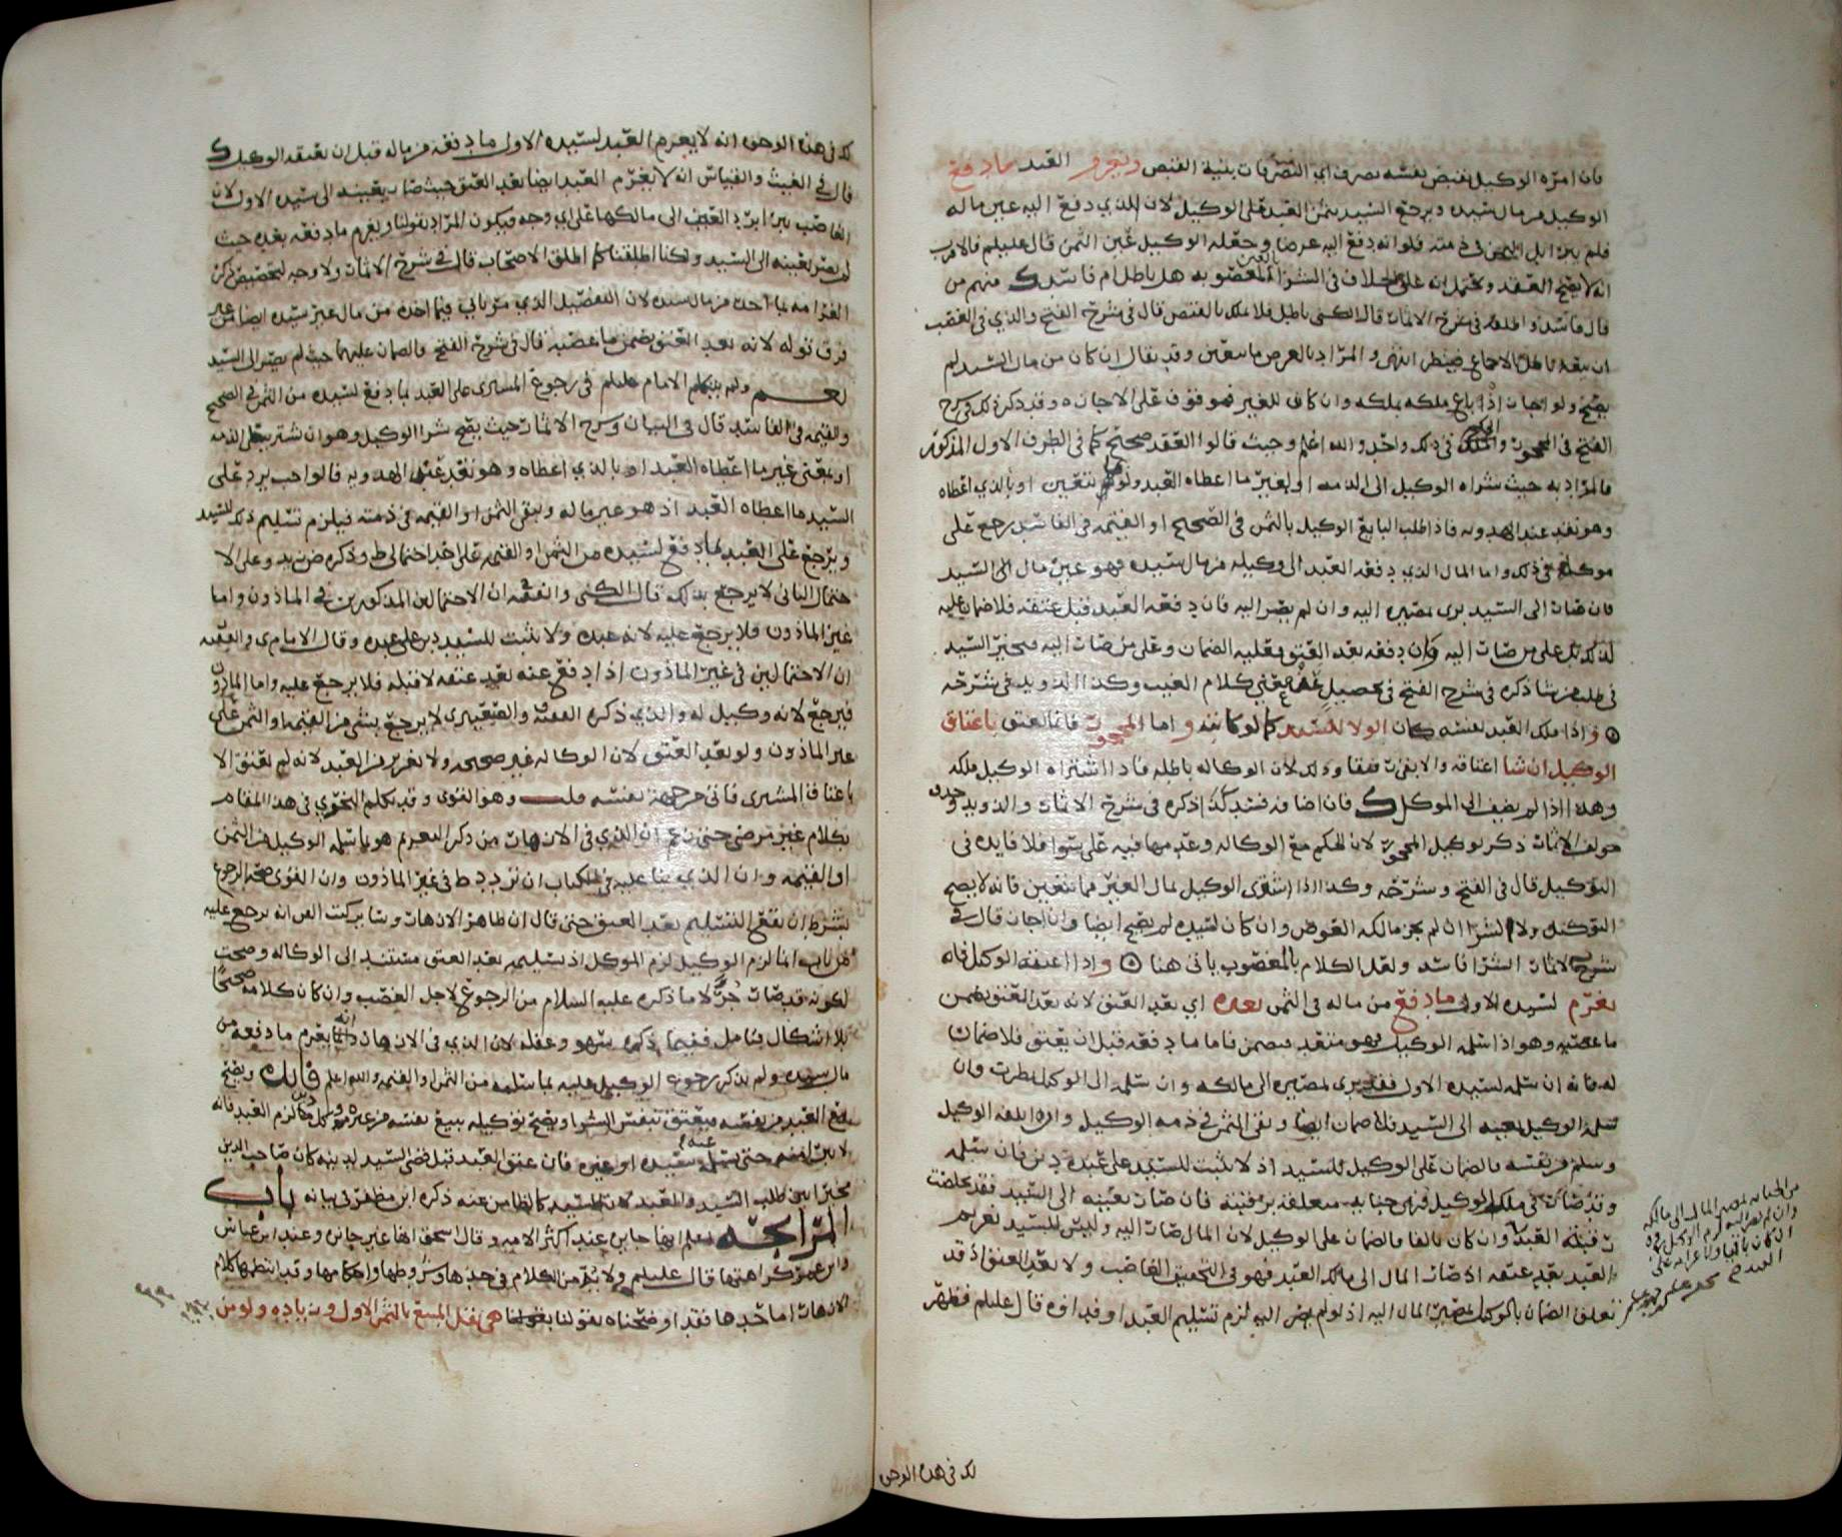 فان امره الوكيل بقبض نفسه بصرف اي التصرفات بنية القبض ويغرم العبد ما دفع
الوكيل من مال سيده ويرجع السيد بثمن العبد على الوكيل لان الذي دفع اليه عين ماله
فلم يبرا الثمن في ذمته فلو انه دفع اليه عرضا وجعله الوكيل عين الثمن قال عليلم فالاقرب
انه لا يصح العقد ويحتمل انه على الخلاف في الشرا بالعين المغصوبه هل باطل ام فاسد منهم من
قال فاسد في شرح الاثمار قال الكني باطل فلا يملك بالقبض قال في شرح الفتح والذي في الغصب
انه باطل بالاجماع فينظر انتهى والمراد بالعرض ما يتعين وقد يقال ان كان من مال السيد لم
يصح ولو اجاز اذ باع ملكه بملكه وان كان للغير فموقوف على الاجازه وقد ذكره في شرح
الفتح في المحجور والحكم في ذلك واحد والله اعلم وحيث قالوا العقد صحيح كما في الطرف الاول المذكور
فالمراد به حيث شراه الوكيل الى الذمه او بغير ما اعطاه العبد ولو مما يتعين او بالذي اعطاه
وهو نقد عند الهدويه فاذا طلب البايع الوكيل بالثمن في الصحيح او القيمه في الفاسد رجع على
موكله في ذلك واما المال الذي دفعه العبد الى وكيله من مال سيده فهو عين مال السيد
فان صار الى السيد برى بمصيره اليه وان لم يصر اليه فان دفعه العبد قبل عتقه فلا ضمان عليه
لذلك بل على من صار اليه وان دفعه بعد العتق فعليه الضمان وعلى من صار اليه فيخير السيد
في طلب من شا ذكره في شرح الفتح في تحصيل معنى كلام الغيث وكذا الذويد في شرحه
واذا ملك العبد نفسه كان الولا للسيد كما لو كاتبه واما المحجور فانما يعتق باعتاق
الوكيل ان شا اعتاقه والا بقي رقيقا وذلك لان الوكاله باطله فاذا اشتراه الوكيل ملكه
وهذا اذا لم يضف الى الموكل فان اضاف فسد كذا ذكره في شرح الاثمار والذويد وحذف
مولف الاثمار ذكر توكيل المحجور لان الحكم مع الوكاله وعدمها فيه على سوا فلا فايده في
التوكيل قال في الفتح وشرحه وكذا اذا اشترى الوكيل بمال الغير مما يتعين فانه لا يصح
التوكيل ولا الشرا ان لم يجز مالك العوض وان كان لسيده لم يصح ايضا وان اجاز قال في
شرح الاثمار الشرا فاسد ولعل الكلام بالمغصوب ياتي هنا واذا اعتقه الوكيل فانه
يغرم لسيده الاول ما دفع من ماله في الثمن بعده اي بعد العتق لانه بعد العتق يضمن
ما غصبه وهو اذا سلمه الوكيل وهو منعقد فيضمن فاما ما دفعه قبل ان يعتق فلا ضمان
له فانه ان سلمه لسيده الاول فقد برى بمصيره الى مالكه وان سلمه الى الوكيل نظرت فان
سلمه الوكيل بعينه الى السيد فلا ضمان ايضا وبقي الثمن في ذمه الوكيل وان اتلفه الوكيل
وسلم من نفسه فالضمان على الوكيل للسيد اذ لا يثبت للسيد على عبده دين فان سلمه
وقد صار في ملك الوكيل فهي جنايه متعلقه برقبته فان صار بعينه الى السيد فقد تخلصت
رقبة العبد وان كان تالفا فالضمان على الوكيل لان المال صار اليه وليس للسيد تغريم
العبد بعد عتقه اذ صار المال الى مالك العبد فهو في التحقيق الغاصب ولا بعد العتق اذ قد
تعلق الضمان بالوكيل لمصير المال اليه اذ لو لم يصر اليه لزم تسليم العبد او فداه قال عليلم فظهر
لك في هذه الوجوه
لك في هذه الوجوه انه لا يغرم العبد لسيده الاول ما دفعه من ماله قبل ان يعتقه الوكيل
قال في الغيث والقياس انه لا يغرم العبد ايضا بعد العتق حيث صار بعينه الى سيده الاول لان
الغاصب يبرا برد العين الى مالكها على اي وجه فيكون المراد بقولنا ويغرم ما دفعه بعده حيث
لم يصر بعينه الى السيد ولكنا اطلقنا كما اطلق الاصحاب قال في شرح الاثمار ولا وجه لتخصيص ذكر
الغرامه بما اخذه من مال سيده لان التفصيل الذي مر ياتي فيما اخذه من مال غير سيده ايضا من غير
فرق قوله لانه بعد العتق يضمن ما غصبه قال في شرح الفتح فالضمان عليهما حيث لم يصر الى السيد
نعم ولم يتكلم الامام عليلم في رجوع المشترى على العبد بما دفع لسيده من الثمن في الصحيح
والقيمه في الفاسد قال في البيان وشرح الاثمار حيث يصح شرا الوكيل وهو ان يشتري على الذمه
او بمعين غير ما اعطاه العبد او بالذي اعطاه وهو نقد عند الهدويه قالوا يجب يرد على
السيد ما اعطاه العبد اذ هو عين ماله وبقي الثمن او القيمه في ذمته فيلزم تسليم ذلك للسيد
ويرجع على العبد بما دفع لسيده من الثمن او القيمه على احد احتمالي ط وذكره ض زيد وعلى الا
حتمال الثاني لا يرجع بذلك قال الكني والفقيه ان الاحتمالين المذكورين في الماذون واما
غير الماذون فلا يرجع عليه لانه عبده ولا يثبت للسيد دين على عبده وقال الامام ى والفقيه
ان الاحتمالين في غير الماذون اذا دفع عنه بعد عتقه لا قبله فلا يرجع عليه واما الماذون
فيرجع لانه وكيل له والذي ذكره الفقيه ف والصعيتري لا يرجع بشي من القيمه او الثمن على
غير الماذون ولو بعد العتق لان الوكاله غير صحيحه ولا تغرير من العبد لانه لم يعتق الا
باعتاق المشترى فاتى من جهة نفسه قلت وهو القوي وقد تكلم النحوي في هذا المقام
بكلام غير مرضي حتى زعم ان الذي في الازهار من ذكر التغريم هو ما سلمه الوكيل من الثمن
او القيمه وان الذي بنا عليه في الكتاب ان تردد ط في غير الماذون وان القوي صحه الرجوع
بشرط ان يقع التسليم بعد العتق حتى قال ان ظاهر الازهار وساير كتب الفن انه يرجع عليه
من باب انما لزم الوكيل لزم الموكل اذ تسليمه بعد العتق مستند الى الوكاله وصحت
لكونه قد صار حرا لا ما ذكره عليه السلام من الرجوع لاجل الغصب وان كان كلامه صحيحا
بلا اشكال فتامل ففيما ذكره سهو وغفله لان الذي في الازهار انه انما يغرم ما دفعه من
مال سيده ولم يذكر رجوع الوكيل عليه بما سلمه من الثمن او القيمه والله اعلم فايده ويصح
بيع العبد من نفسه فيعتق بنفس الشرا ويصح توكيله ببيع نفسه من غيره وكل دين لزم العبد فانه
لا يبرا منه حتى يسلمه عنه سيده او غيره فان عتق العبد قبل قضى السيد لدينه كان صاحب الدين
مخيرا بين طلب السيد والعبد لان السيد كالضامن عنه ذكره ابن مظفر في بيانه باب
المرابحه اعلم انها جايزه عند اكثر الامه وقال اسحق انها غير جايزه وعند ابن عباس
وابن عمر كراهتها قال عليلم ولا بد من الكلام في حدها وشروطها واحكامها وقد انتظمها كلام
الازهار اما حدها فقد اوضحناه بقولنا هي نقل المبيع بالثمن الاول وزياده ولو من